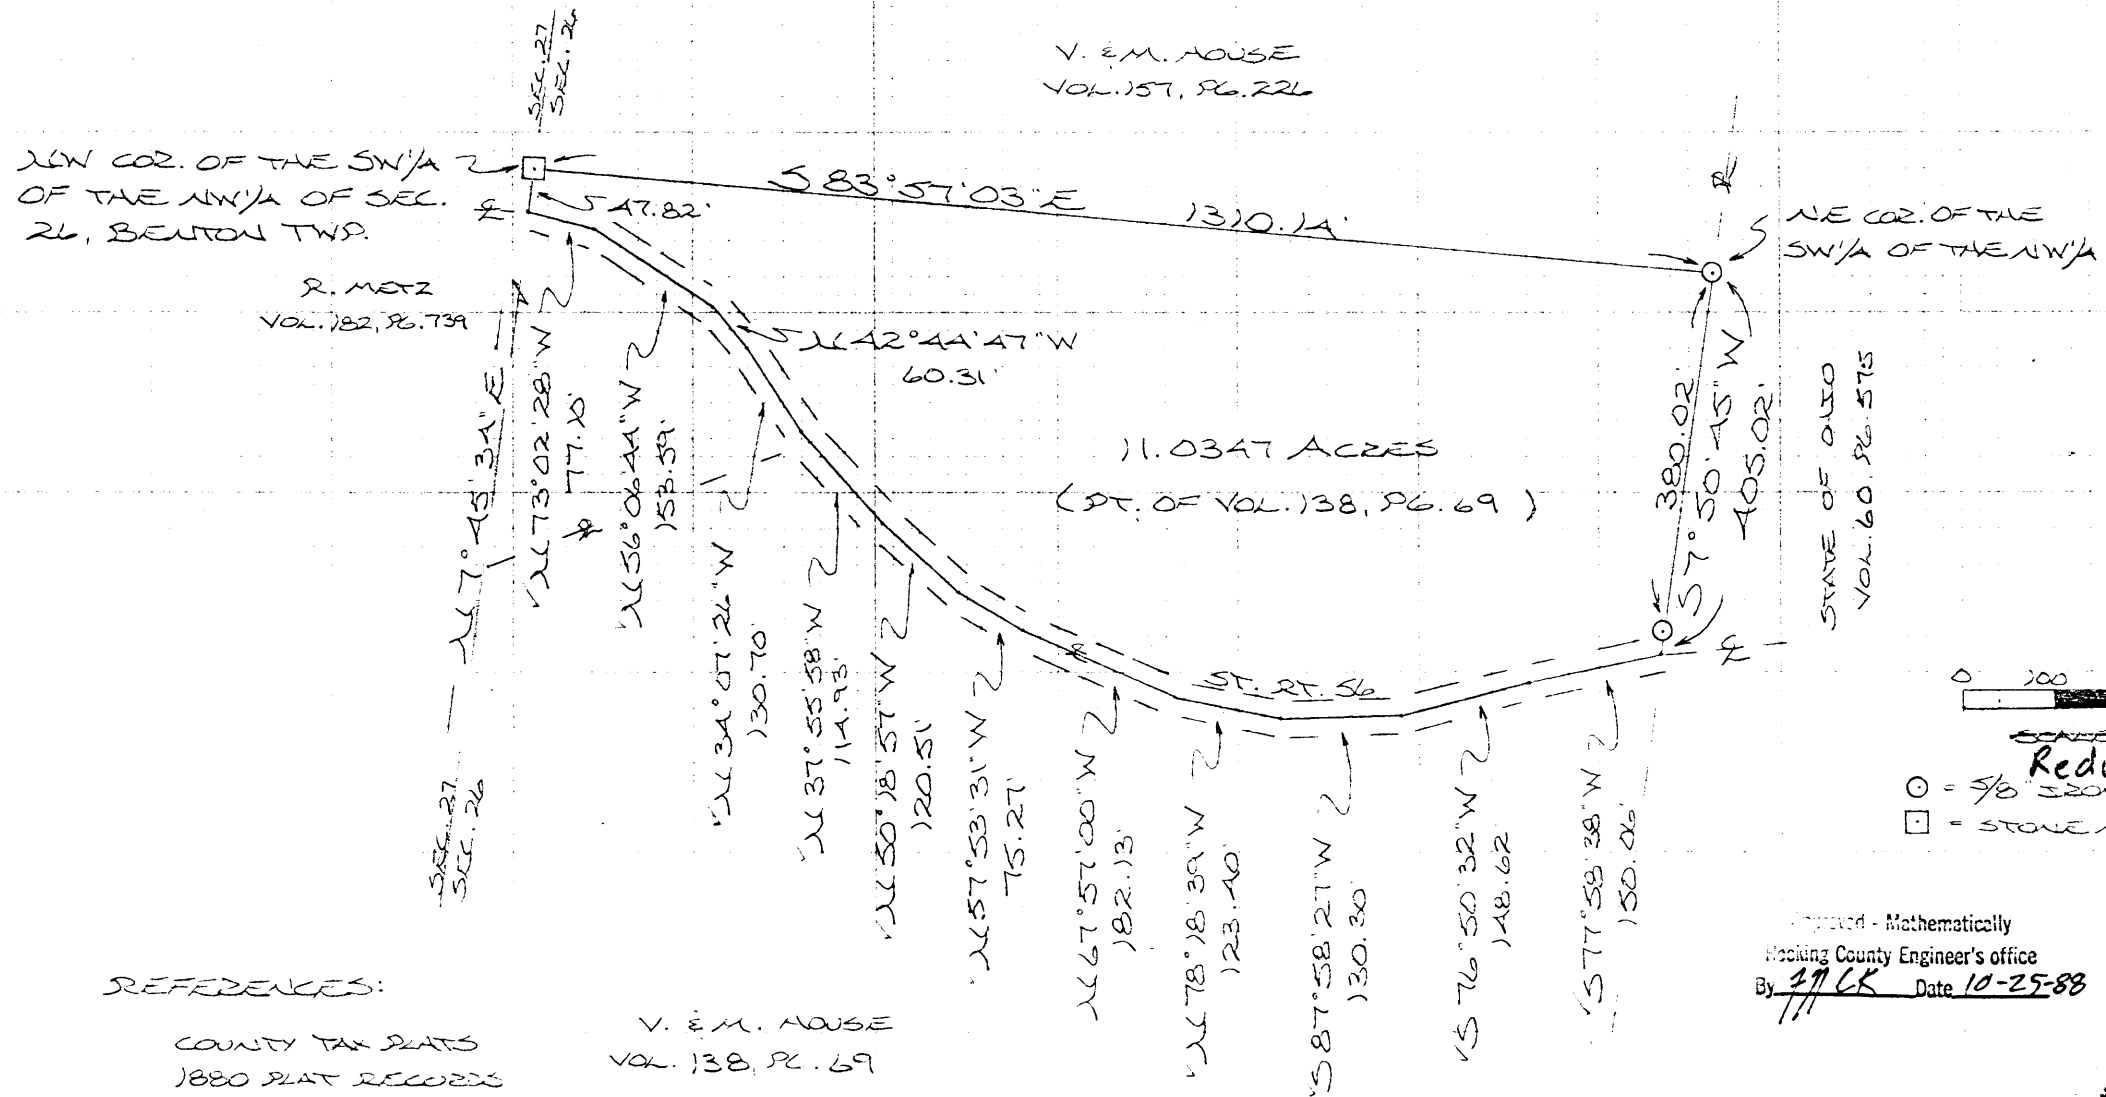 SEC. 27
SEC. 26
V. & M. HOUSE
VOL. 157, PG. 226
NW COR. OF THE SW 1/4
OF THE NW 1/4 OF SEC.
26, BENTON TWP.
47.82'
S 83° 57' 03" E 1310.14'
NE COR. OF THE
SW 1/4 OF THE NW 1/4
R. METZ
VOL. 182, PG. 739
N 42° 44' 47" W
60.31'
11.0347 ACRES
(PT. OF VOL. 138, PG. 69)
380.02'
S 7° 50' 45" W
405.02'
STATE OF OHIO
VOL. 60, PG. 575
N 7° 45' 34" E
N 73° 02' 28" W
77.10'
N 56° 06' 44" W
153.59'
N 34° 07' 26" W
130.70'
N 37° 55' 58" W
114.93'
N 50° 18' 57" W
120.51'
N 57° 53' 31" W
75.27'
N 67° 57' 00" W
182.13'
N 78° 18' 39" W
123.40'
S 87° 58' 27" W
130.30'
S 76° 50' 32" W
148.62'
S 77° 58' 38" W
150.06'
ST. RT. 56
SEC. 27
SEC. 26
0 100
= 5/8"
= STONE
Mathematically
Hocking County Engineer's office
By Date 10-25-88
REFERENCES:
COUNTY TAX PLATS
1880 PLAT RECORDS
V. & M. HOUSE
VOL. 138, PG. 69